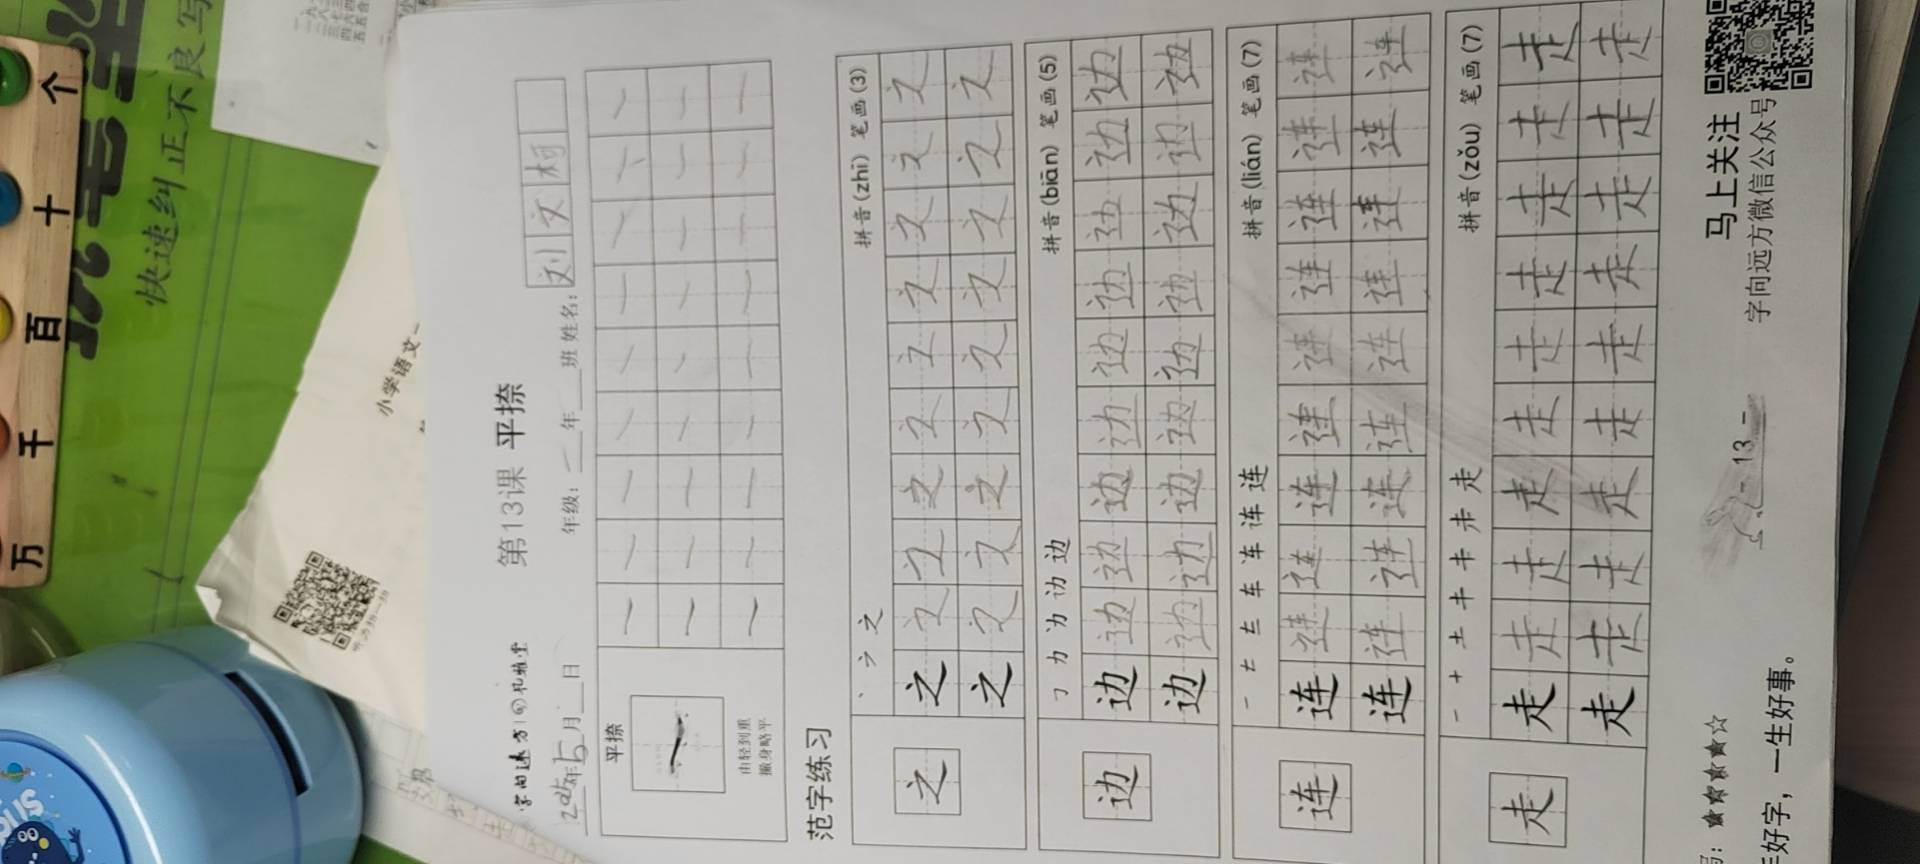 个
十
百
千
万
快速纠正不良写
小学语文
字向远方
第13课 平捺
2025年5月__日
年级:二年__班 姓名:刘文柯
平捺
由轻到重
撇身略平
范字练习
之
丶 ㇇ 之
拼音(zhī) 笔画(3)
之 之 之 之 之 之 之 之 之 之
之 之 之 之 之 之 之 之 之 之
边
㇆ 力 力 边 边
拼音(biān) 笔画(5)
边 边 边 边 边 边 边 边 边 边
边 边 边 边 边 边 边 边 边 边
连
一 车 连 连
拼音(lián) 笔画(7)
连 连 连 连 连 连 连 连 连 连
连 连 连 连 连 连 连 连 连 连
走
一 十 土 走
拼音(zǒu) 笔画(7)
走 走 走 走 走 走 走 走 走 走
走 走 走 走 走 走 走 走 走 走
★★★★★☆
好字,一生好事。
- 13 -
马上关注
字向远方微信公众号